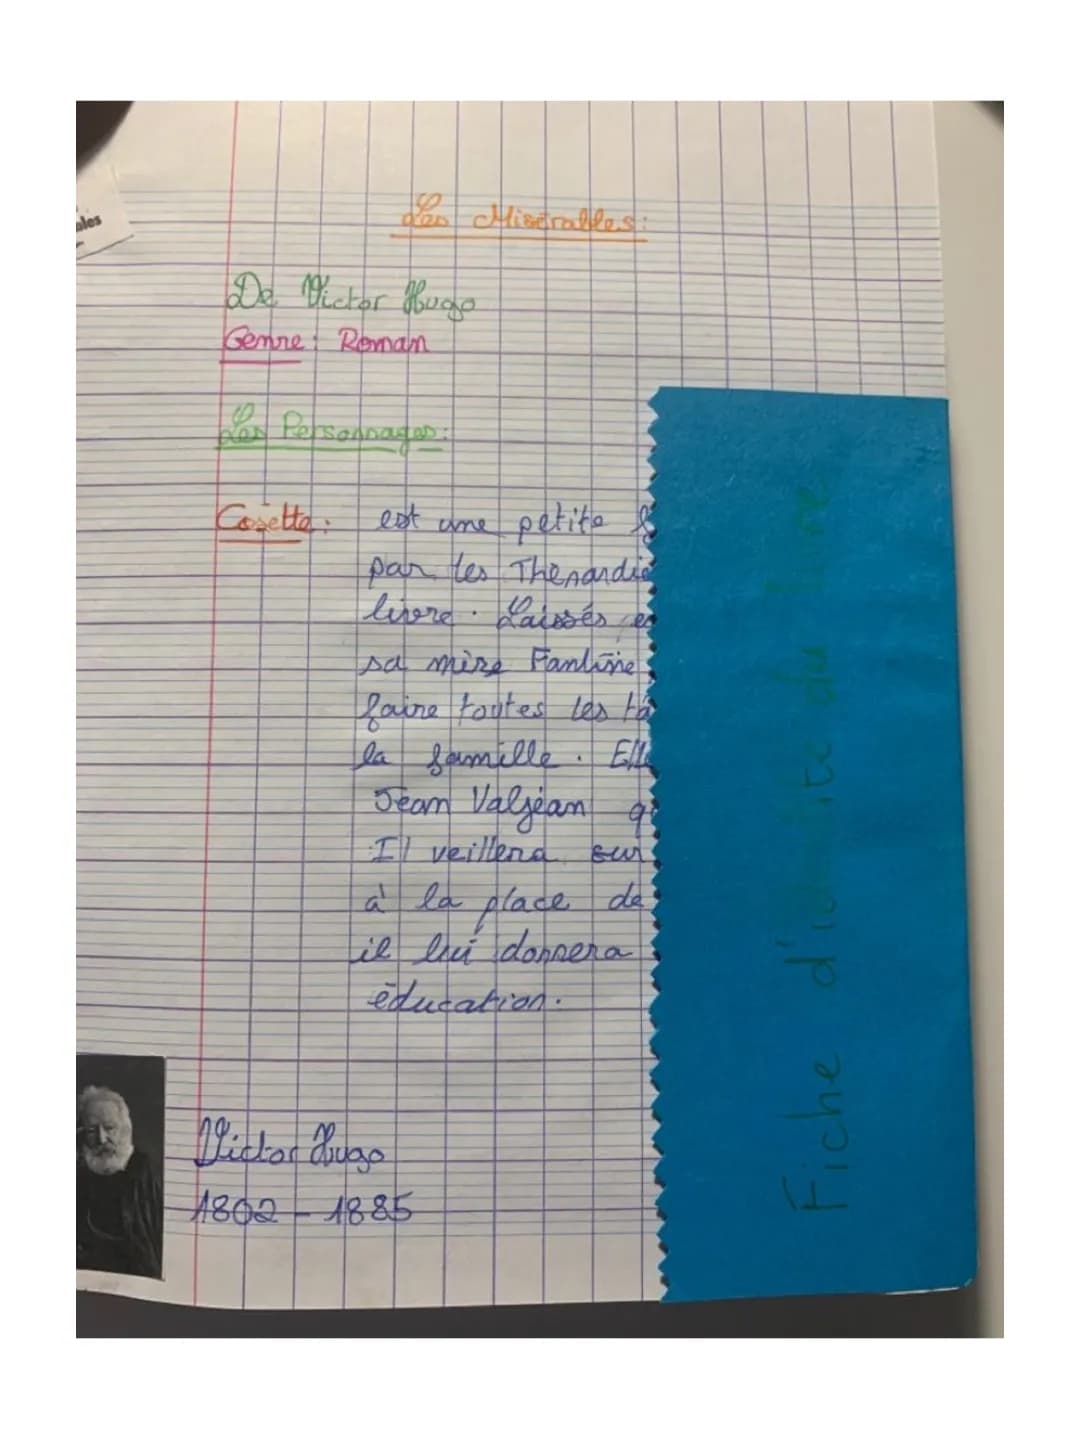 ales
Les Misérables:
De Victor Hugo
Genre: Roman
Les Personnages:
Cosette: est une petite
par les Thenardie
livre. Laissés
sa mère Fantine
faire toutes les tâ
la famille. Elle
Jean Valjean
Il veillera sur
à la place de
il lui donnera
éducation.
Victor Hugo
1802 - 1885
Fiche d'identité du livre